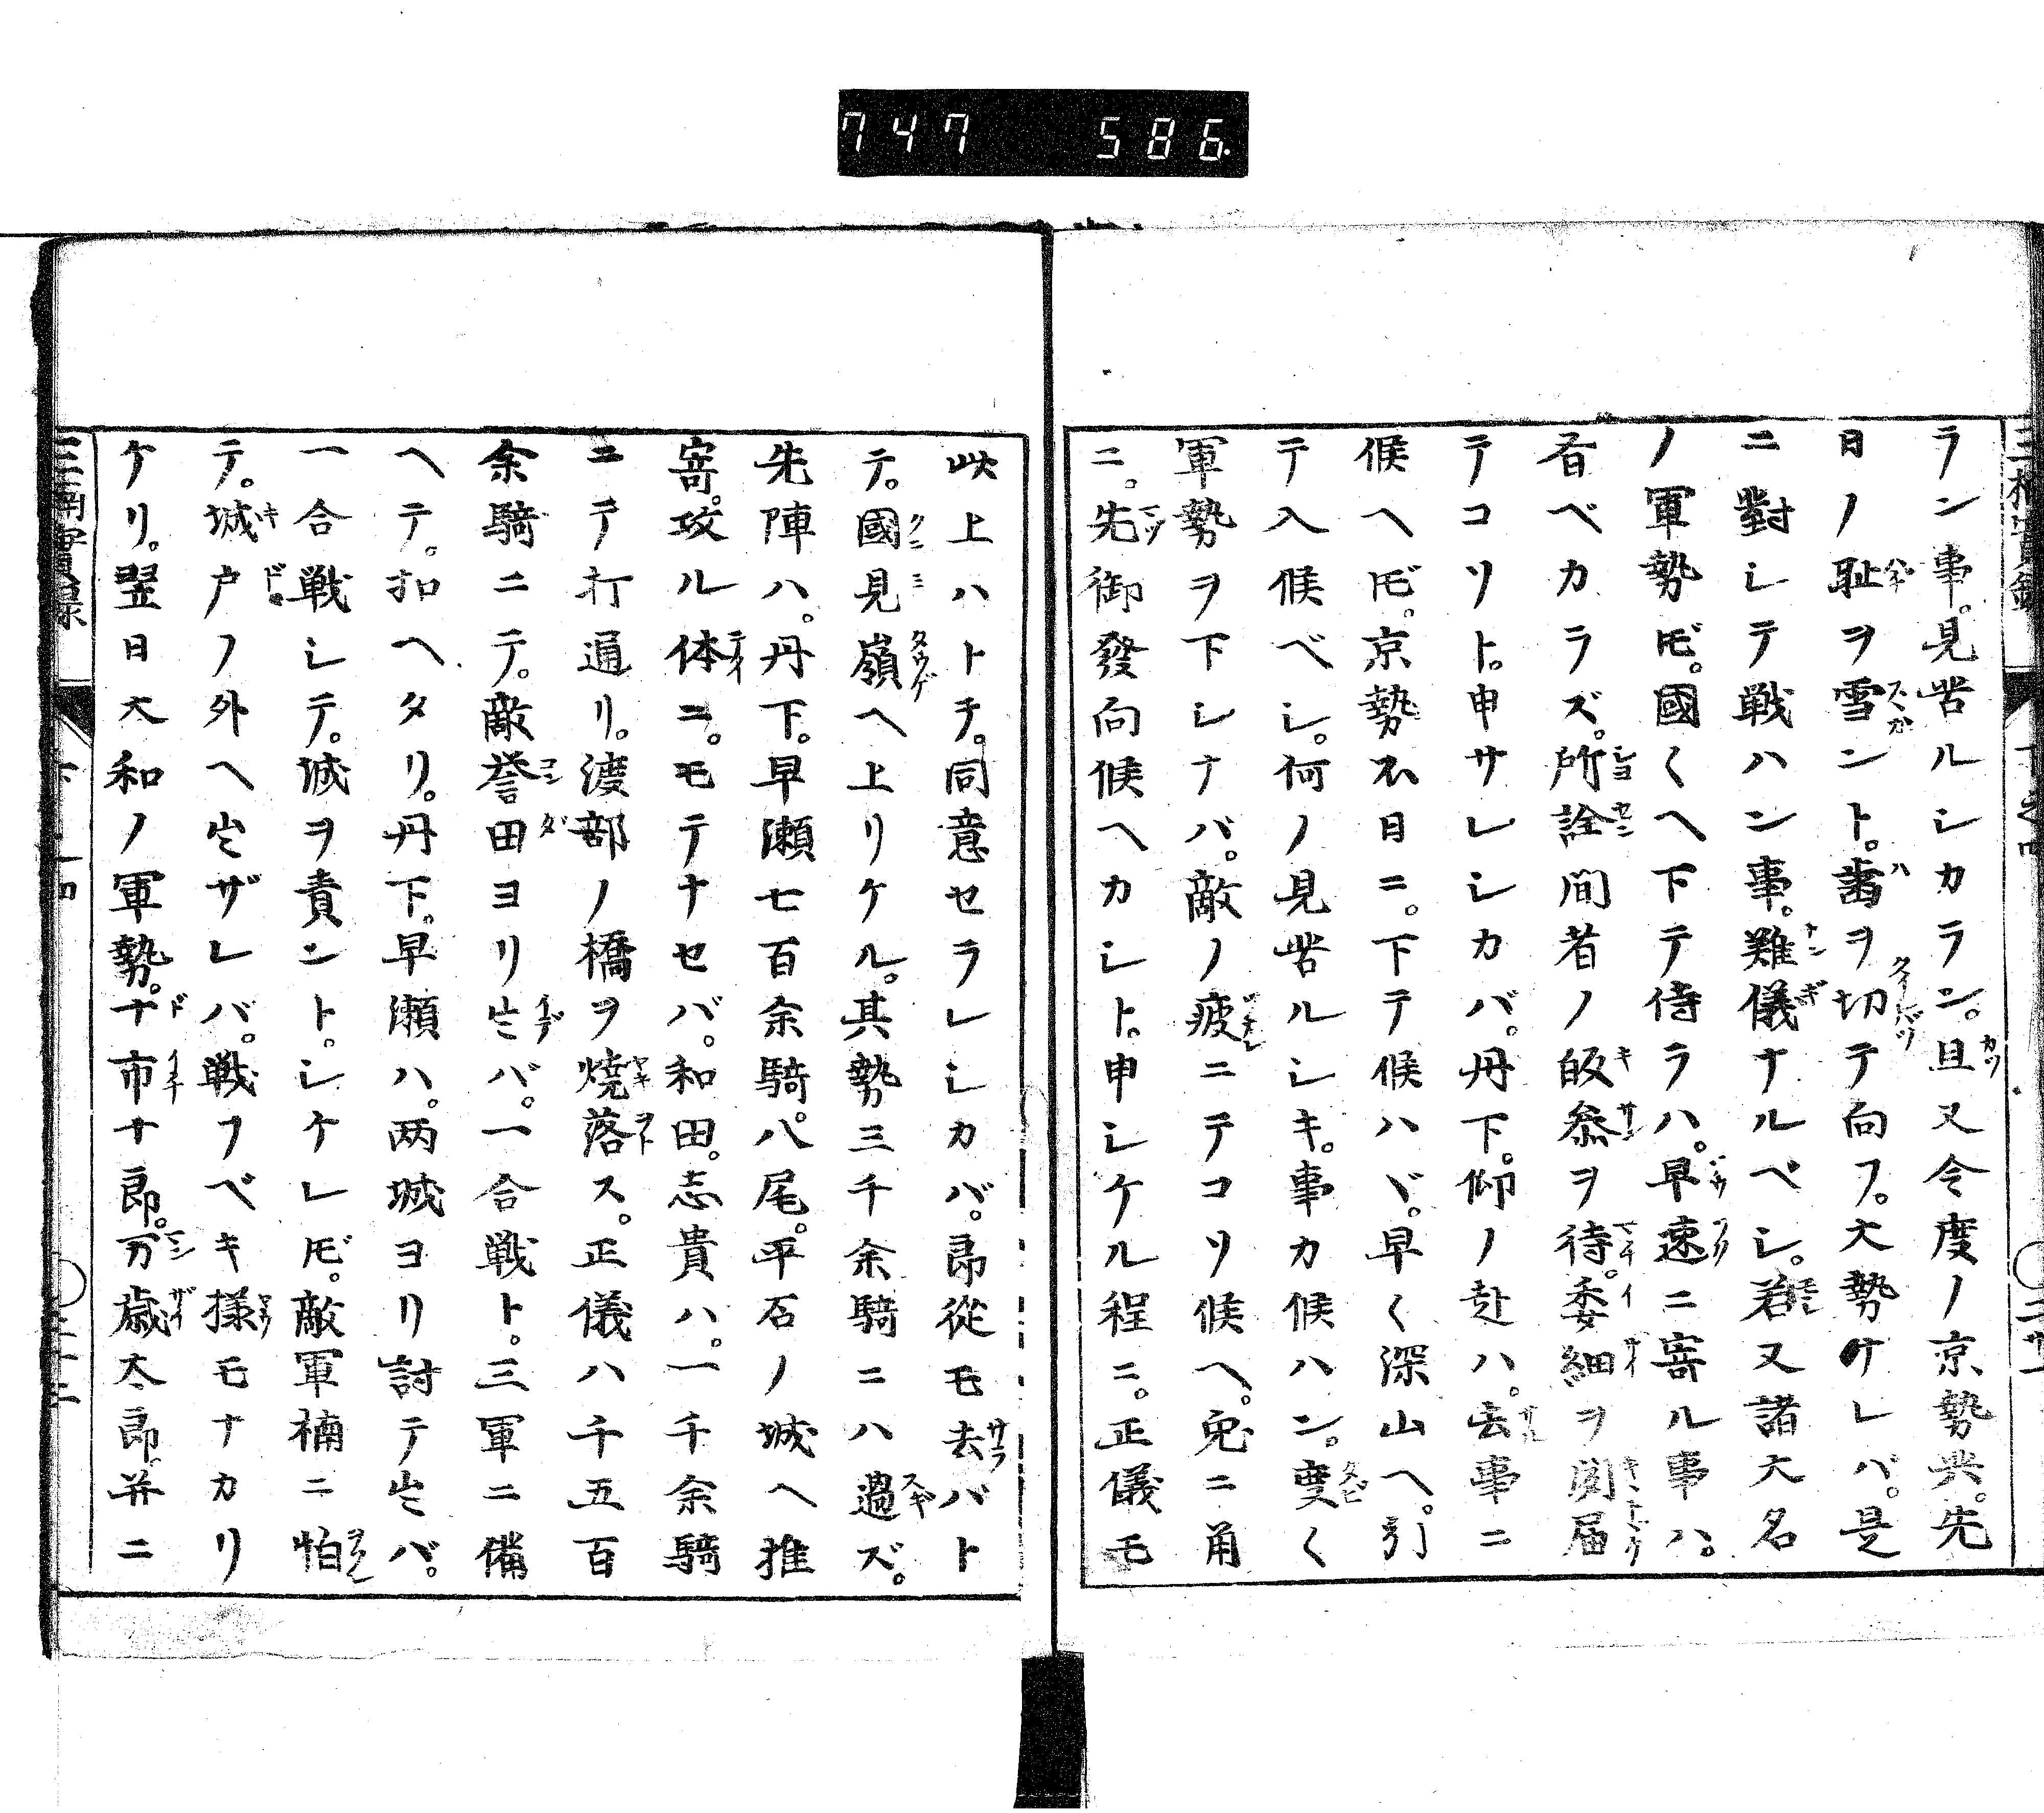 747 586.
ラン事。見苦ルシカラン。且又今度ノ京勢共。先
日ノ耻ヲ雪ント。歯ヲ切テ向フ。大勢ケレバ。是
ニ對シテ戦ハン事。難儀ナルベシ。若又諸大名
ノ軍勢𪜈。國〱ヘ下テ侍ラハ。早速ニ寄ル事ハ。
有ベカラズ。所詮間者ノ皈参ヲ待。委細ヲ聞届
テコソト。申サレシカバ。丹下。仰ノ赴ハ。去事ニ
候ヘ𪜈。京勢不日ニ。下テ候ハヾ。早〱深山ヘ。引
テ入候ベシ。何ノ見苦ルシキ。事カ候ハン。度〱
軍勢ヲ下シナバ。敵ノ疲ニテコソ候ヘ。兎ニ角
ニ。先御發向候ヘカシト。申シケル程ニ。正儀モ
此上ハトテ。同意セラレシカバ。郎從モ去バト
テ。國見嶺ヘ上リケル。其勢三千余騎ニハ過ズ。
先陣ハ。丹下。早瀬七百余騎。八尾。平石ノ城ヘ推
寄。攻ル体ニ。モテナセバ。和田。志貴ハ。一千余騎
ニテ打通リ。渡部ノ橋ヲ焼落ス。正儀ハ千五百
余騎ニテ。敵誉田ヨリ出バ。一合戦ト。三軍ニ備
ヘテ。扣ヘタリ。丹下。早瀬ハ。両城ヨリ討テ出バ。
一合戦シテ。城ヲ責ント。シケレ𪜈。敵軍楠ニ怕
テ。城戸ノ外ヘ出ザレバ。戦フベキ様モナカリ
ケリ。翌日大和ノ軍勢。十市十郎。万歳太郎。并ニ